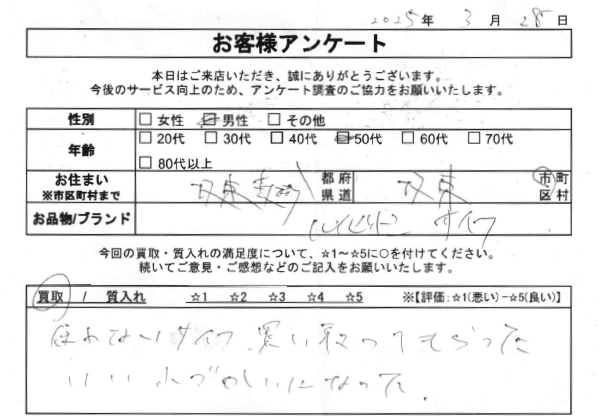 2025年 3月 28日
お客様アンケート
本日はご来店いただき、誠にありがとうございます。
今後のサービス向上のため、アンケート調査のご協力をお願いいたします。
性別 □女性 ☑男性 □その他
年齢 □20代 □30代 □40代 ☑50代 □60代 □70代
□80代以上
お住まい 都府 市町
※市区町村まで 県道 坂東 区村
お品物/ブランド サイフ
今回の買取・質入れの満足度について、☆1～☆5に○を付けてください。
続いてご意見・ご感想などのご記入をお願いいたします。
買取 / 質入れ ☆1 ☆2 ☆3 ☆4 ☆5 ※【評価:☆1(悪い)－☆5(良い)】
使わないサイフ、買い取ってもらった
いいこづかいになった.